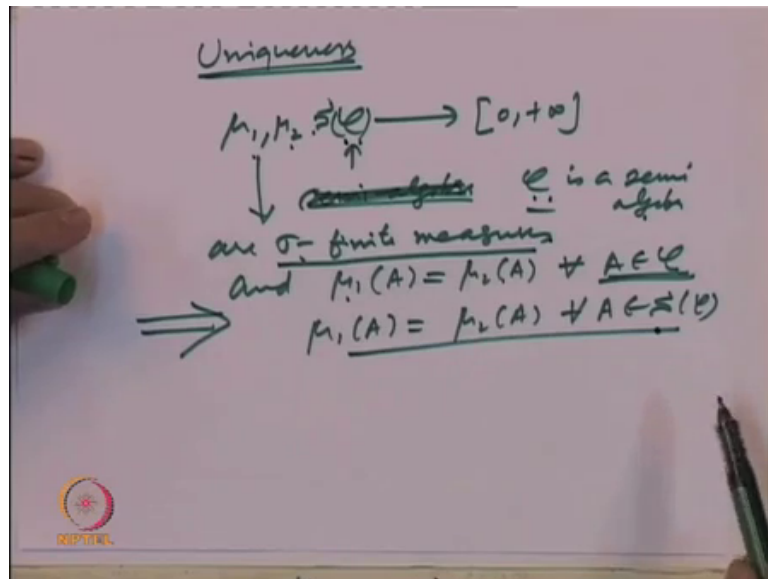 Uniqueness
μ₁, μ₂ : S(φ) ⟶ [0, +∞]
↑
semi algebra φ is a semi
algebra
are σ- finite measures
and μ₁(A) = μ₂(A) ∀ A ∈ φ
⟹ μ₁(A) = μ₂(A) ∀ A ∈ S(φ)
NPTEL